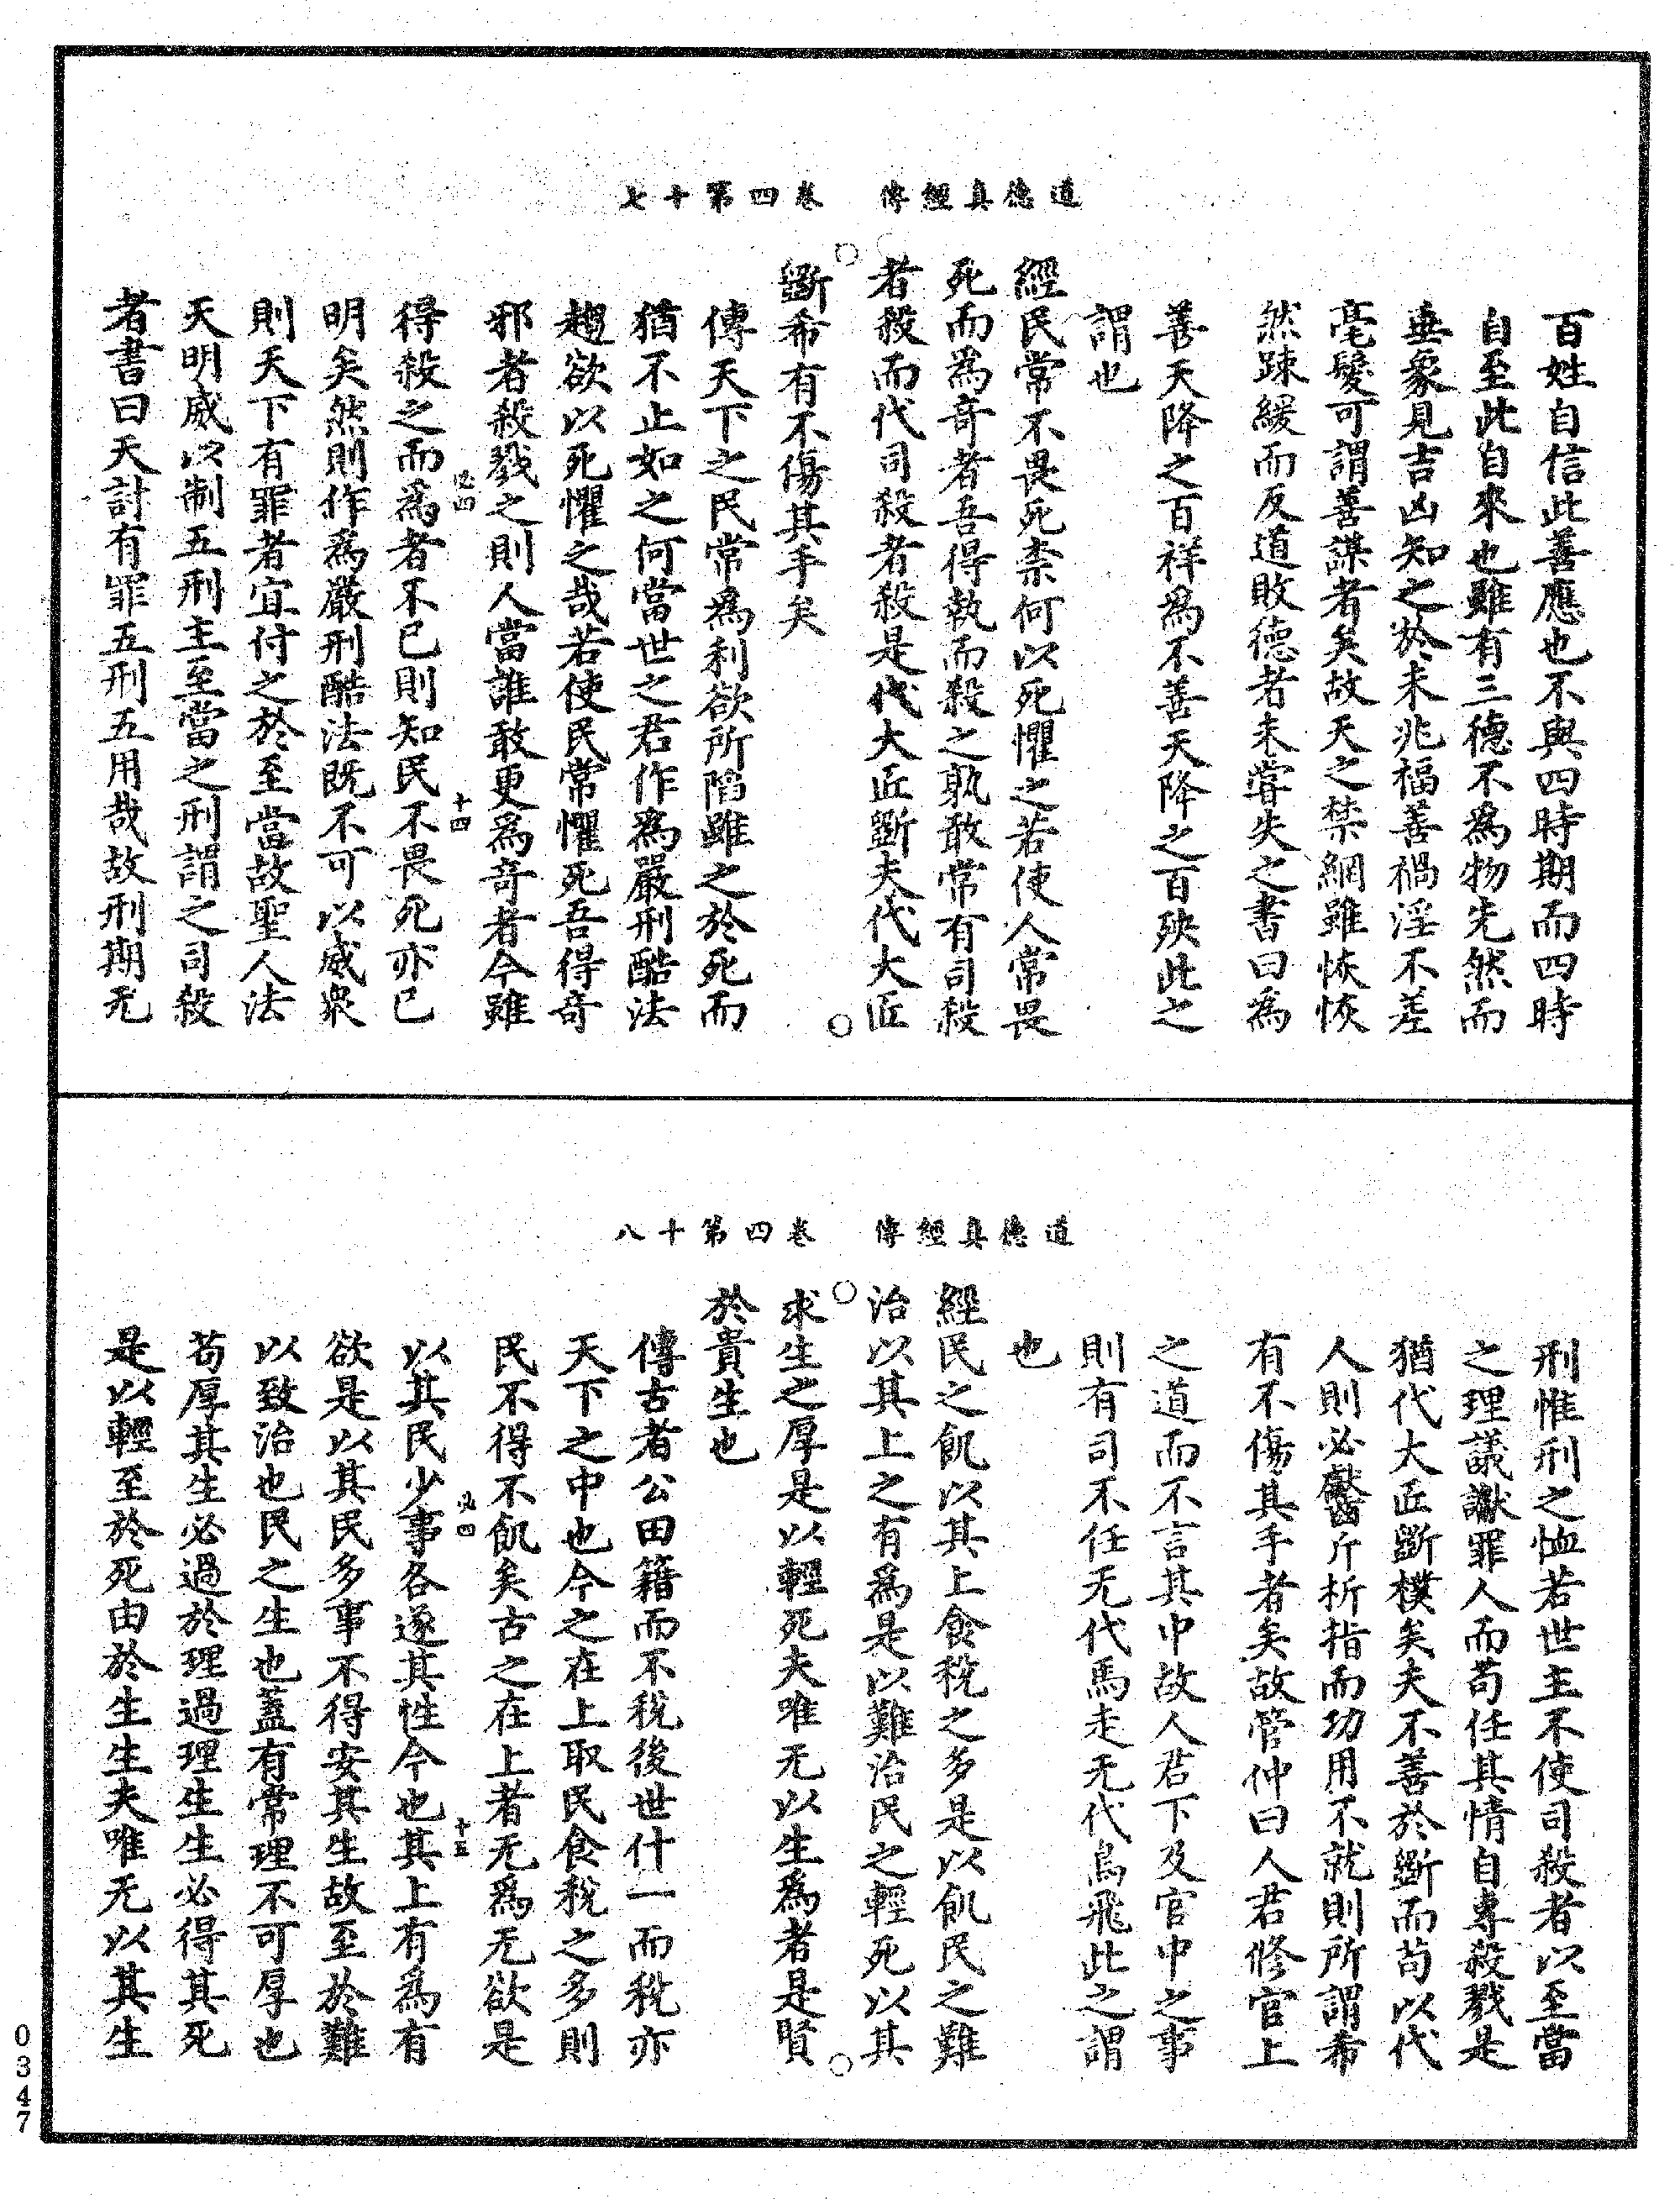 道德真經傳　卷四第十七
百姓自信此善應也不與四時期而四時
自至此自來也雖有三德不為物先然而
垂象見吉凶知之於未兆福善禍淫不差
毫髮可謂善謀者矣故天之禁網雖恢恢
然踈緩而反道敗德者未甞失之書曰為
善天降之百祥為不善天降之百殃此之
謂也
經民常不畏死柰何以死懼之若使人常畏
死而為奇者吾得執而殺之孰敢常有司殺
者殺而代司殺者殺是代大匠斵夫代大匠
斵希有不傷其手矣
傳天下之民常為利欲所陷雖之於死而
猶不止如之何當世之君作為嚴刑酷法
趣欲以死懼之哉若使民常懼死吾得奇
邪者殺戮之則人當誰敢更為奇者今雖
必四　十四
得殺之而為者不已則知民不畏死亦已
明矣然則作為嚴刑酷法既不可以威衆
則天下有罪者宜付之於至當故聖人法
天明威以制五刑主至當之刑謂之司殺
者書曰天討有罪五刑五用哉故刑期无
道德真經傳　卷四第十八
刑惟刑之恤若世主不使司殺者以至當
之理議讞罪人而苟任其情自專殺戮是
猶代大匠斵樸矣夫不善於斵而苟以代
人則必齾斤折指而功用不就則所謂希
有不傷其手者矣故管仲曰人君修官上
之道而不言其中故人君下及官中之事
則有司不任无代馬走无代鳥飛此之謂
也
經民之飢以其上食稅之多是以飢民之難
治以其上之有為是以難治民之輕死以其
求生之厚是以輕死夫唯无以生為者是賢
於貴生也
傳古者公田籍而不稅後世什一而稅亦
天下之中也今之在上取民食稅之多則
民不得不飢矣古之在上者无為无欲是
必四　十五
以其民少事各遂其性今也其上有為有
欲是以其民多事不得安其生故至於難
以致治也民之生也蓋有常理不可厚也
苟厚其生必過於理過理生生必得其死
是以輕至於死由於生生夫唯无以其生
0347